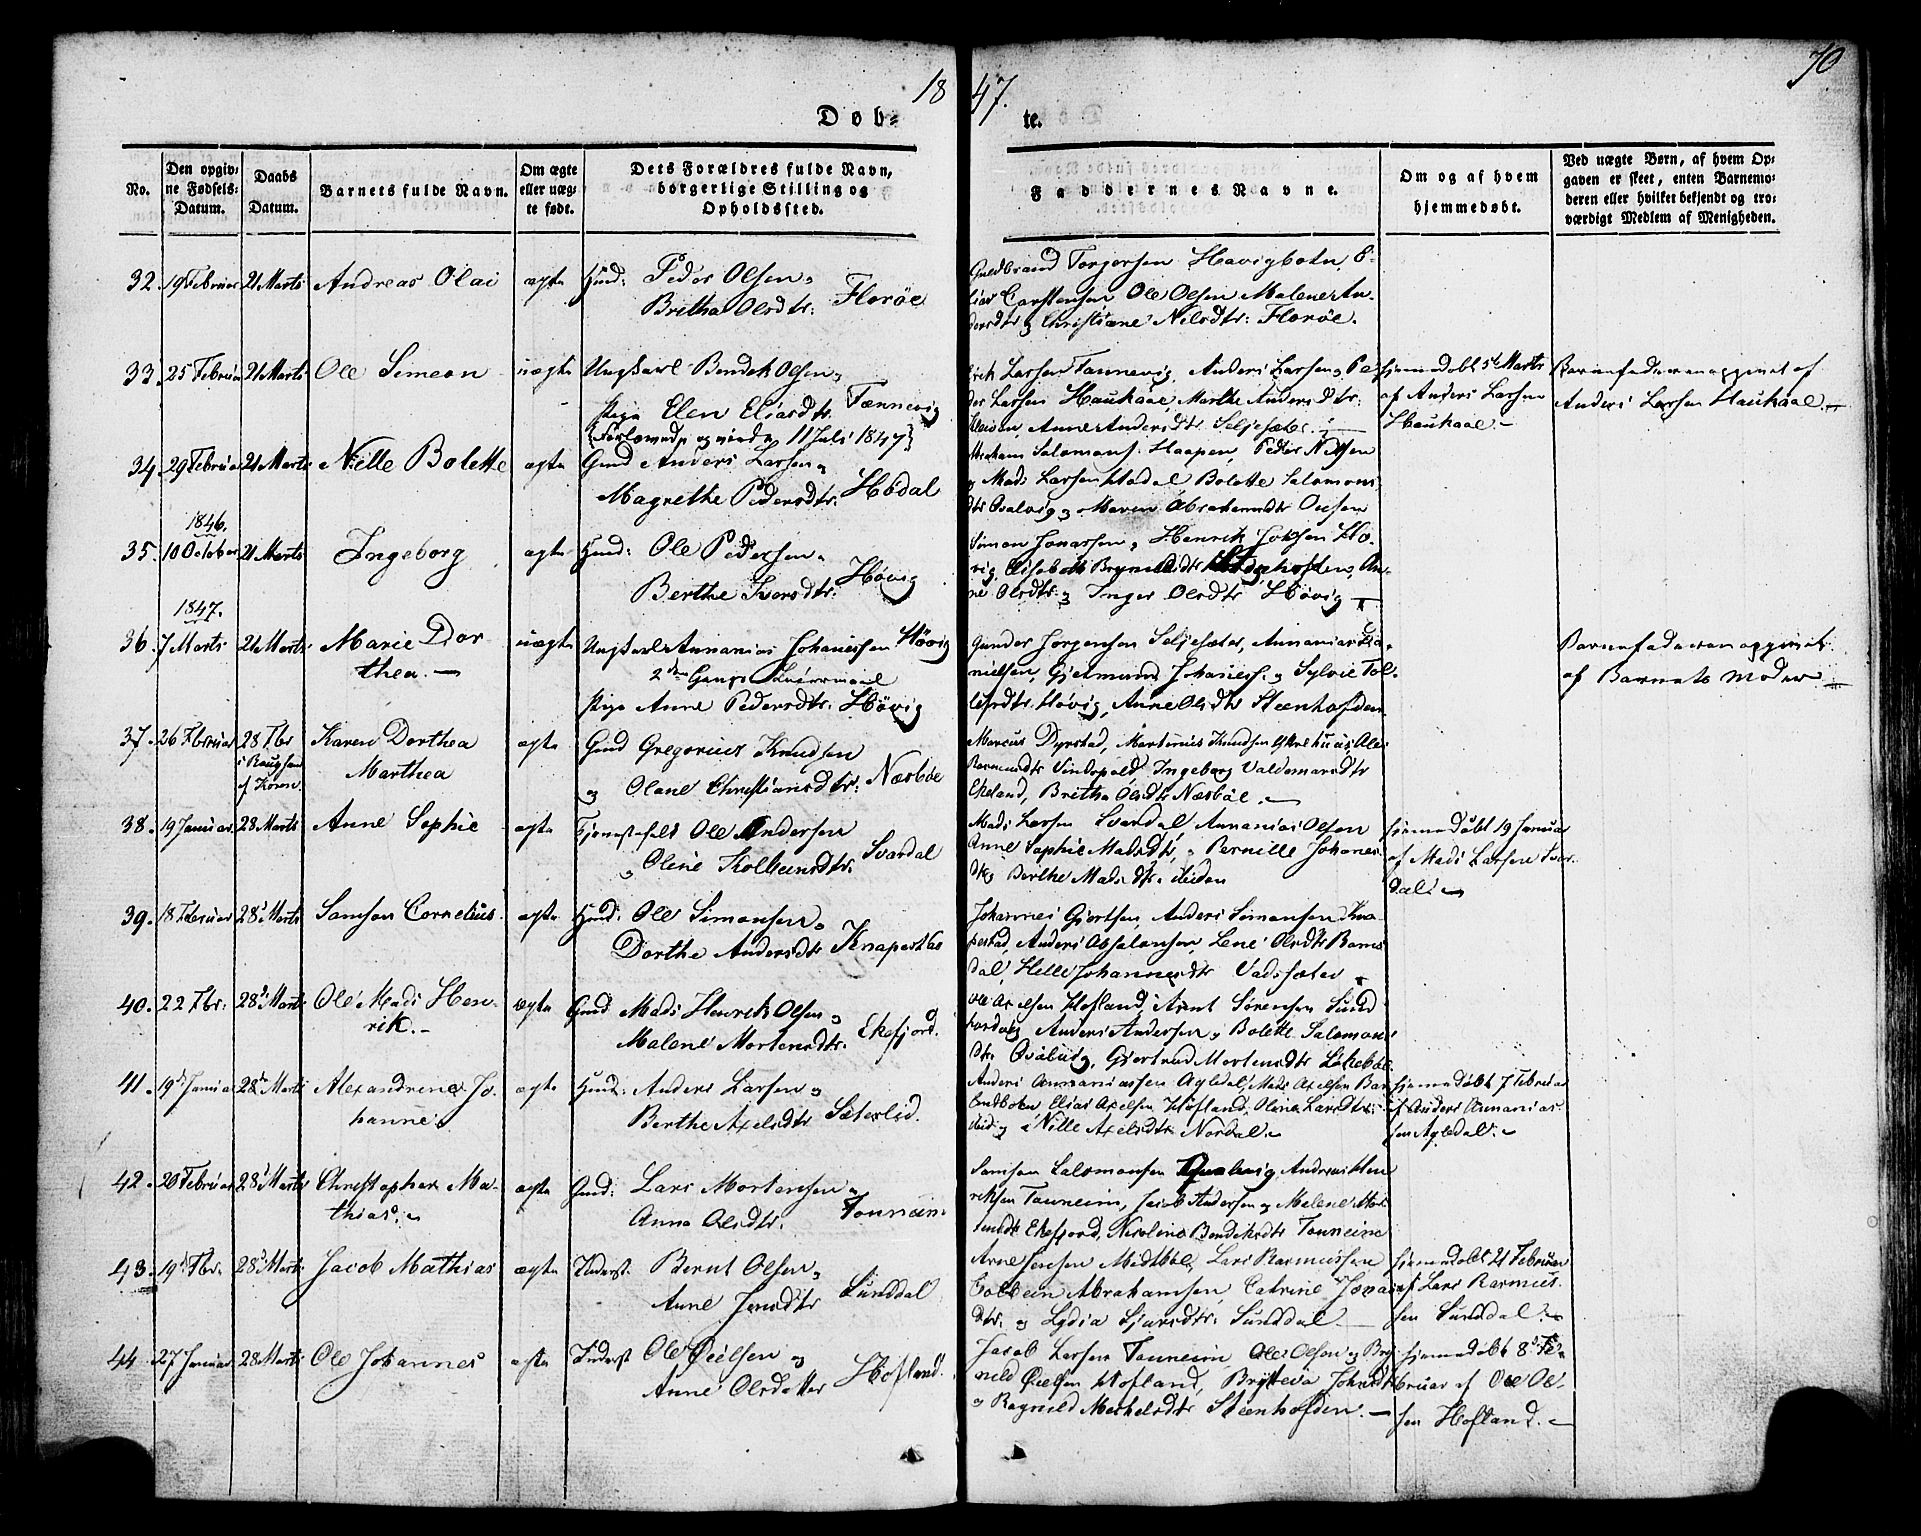 1847.
70
Døb-
te.
No.
Den opgiv-
ne Fødsels-
Datum.
Daabs
Datum.
Barnets fulde Navn.
Om ægte
eller uæg-
te født.
Dets Forældres fulde Navn,
borgerlige Stilling og
Opholdssted.
Faddernes Navne.
Om og af hvem
hjemmedøbt.
Ved uægte Børn, af hvem Op-
gaven er skeet, enten Barnemo-
deren eller hvilket bekjendt og tro-
værdigt Medlem af Menigheden.
32. 19 Februar 21 Marts Andreas Olai ægte Huusm: Peder Olsen og
Britha Olsdtr: Florøe
Guldbrand Torgersen Havigbotn, E-
lias Carstensen, Ole Olsen Malene An-
dersdtr og Christiane Nilsdtr: Florøe.
33. 25 Februar 21 Marts Ole Simeon uægte Ungkarl Bendik Olsen og
Pige Elen Eliasdtr. Tonnevig
{Forlovede og viede 11 Juli 1847}
Erik Larsen Tonnevig, Anders Larsen, Pe-
der Larsen Haukaae, Marthe Andersdtr:
Kleiven, Anne Andersdtr Seljesæter
hjemmedøbt 5te Marts
af Anders Larsen
Haukaae
Barnefaderen opgivet af
Anders Larsen Haukaae
34. 29 Februar 21 Marts Nille Bolette ægte Gmd Anders Larsen og
Magrethe Pedersdtr. Hødal
Abraham Salomons: Haapen, Peder Nilsen
og Mads Larsen Hødal Bolette Salomons
dtr Qvalvig og Maren Abrahamsdtr
1846.
35. 10 October 21 Marts Ingeborg ægte Huusm: Ole Pedersen og
Berthe Iversdtr. Høvig
Simon Jonassen, Henrik Jonsen Hø-
vig, Elisabeth Brynildsdtr Steenhofden, An-
ne Olsdtr: og Inger Olsdtr Høvig
1847.
36. 7 Marts 21 Marts Marie Dor-
thea. uægte Ungkarl Annanias Johannessen Høvig
2den Gangs Leiermaal
Pige Anne Pedersdtr: Høvig
Gunder Jørgensen Seljesæter, Annanias Da-
nielsen, Gjermund Johaness. og Sylvie Tol-
lefsdtr. Høvig, Anne Olsdtr Steenhofden
Barnefaderen opgivet
af Barnets Moder
37. 26 Februar 28 Fbr
Karen Dorthea
Marthea ægte Gmd Gregorius Knudsen
og Oline Christiansdtr: Næsbøe
Marcus Dyrstad, Martinus Knudsen
Rasmusdtr Vindspold, Ingeborg Valdemarsdtr
Ekeland, Britha Olsdtr Næsbøe.
38. 19 Januar 28 Marts Anne Sophie ægte Ole Andersen
og Oline Kolbeinsdtr. Svardal
Mads Larsen Svardal Annanias Olsen
Anne Sophie Madsdtr, Pernille Johanes-
dtr Berthe Madsdtr. ibidem
hjemmedøbt 19 Januar
af Mads Larsen Svar-
dal
39. 18 Februar 28 Marts Samson Cornelius ægte Huusm: Ole Simonsen og
Dorthe Andersdtr Knapestad
Johannes Gjertsen, Anders Simonsen Kna-
pestad, Anders Absalonsen, Lene Olsdtr Rams-
dal, Helle Johannesdtr Vadsæter
40. 22 Fbr. 28 Marts Ole Mads Hen-
rik. ægte Gmd Mads Henrik Olsen og
Malene Mortensdtr. Ekefjord.
Ole Axelsen Hofland, Arent Sørensen Sund
Anders Andersen og Bolette Salomons
dtr. Qvalvig, Gjertrud Mortensdtr
41. 19 Januar 28 Marts Alexandrine Jo-
hanne. ægte Huusm: Anders Larsen og
Berthe Axelsdtr Sæterlid.
Anders Annaniassen Agledal, Mads Axelsen
Elias Axelsen Hofland, Oline Larsdtr:
og Nille Axelsdtr Nordal
hjemmedøbt 7 Februar
af Anders Annanias-
sen Agledal.
42. 20 Februar 28 Marts Christopher Ma-
thias. ægte Gmd: Lars Mortensen og
Anna Olsdtr. Tonneim
Samson Salomonsen Qvalvig, Andreas Hen-
riksen Tonneim, Jacob Andersen og Malene Mor-
tensdtr Ekefjord, Nicoline Bendiksdtr Tonneim
43. 19 Fbr. 28 Marts Jacob Mathias ægte Inderst. Bernt Olsen og
Anne Jensdtr Sunddal
Arne Jensen Midtbøe, Lars Rasmussen
Colbein Abrahamsen, Catrine Jonas-
dtr. og Lydia Sjursdtr: Sunddal
hjemmedøbt 21 Februar
af Lars Rasmus-
sen Sunddal.
44. 27 Januar 28 Marts Ole Johannes ægte Inderst Ole Øielsen og
Anne Olsdatter Hofland.
Jacob Larsen Tonneim, Ole Olsen og Bry-
nild Øielsen Hofland, Johnsdtr
og Ragnild Michelsdtr Steenhofden.
hjemmedøbt 8de Fe-
bruar af Ole Ol-
sen Hofland.